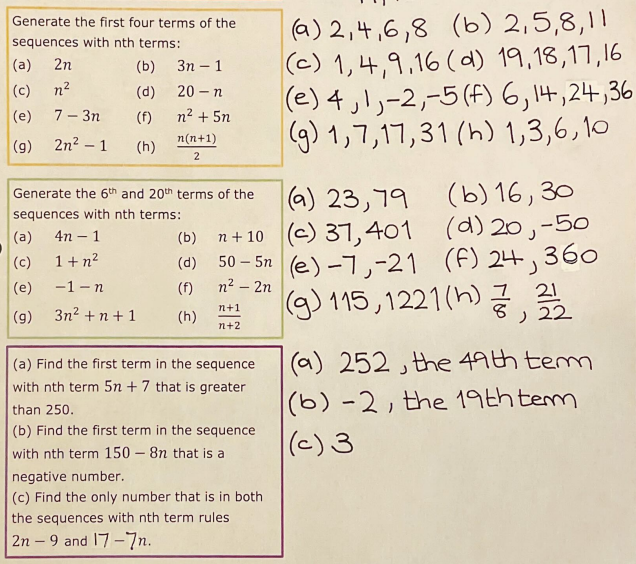 Generate the first four terms of the
sequences with nth terms:
(a) 2n (b) 3n − 1
(c) n² (d) 20 − n
(e) 7 − 3n (f) n² + 5n
(g) 2n² − 1 (h) n(n+1)/2
(a) 2,4,6,8 (b) 2,5,8,11
(c) 1,4,9,16 (d) 19,18,17,16
(e) 4,1,-2,-5 (f) 6,14,24,36
(g) 1,7,17,31 (h) 1,3,6,10
Generate the 6th and 20th terms of the
sequences with nth terms:
(a) 4n − 1 (b) n + 10
(c) 1 + n² (d) 50 − 5n
(e) −1 − n (f) n² − 2n
(g) 3n² + n + 1 (h) n+1/n+2
(a) 23,79 (b) 16,30
(c) 37,401 (d) 20,-50
(e) -7,-21 (f) 24,360
(g) 115,1221 (h) 7/8, 21/22
(a) Find the first term in the sequence
with nth term 5n + 7 that is greater
than 250.
(b) Find the first term in the sequence
with nth term 150 − 8n that is a
negative number.
(c) Find the only number that is in both
the sequences with nth term rules
2n − 9 and 17 − 7n.
(a) 252, the 49th term
(b) -2, the 19th term
(c) 3